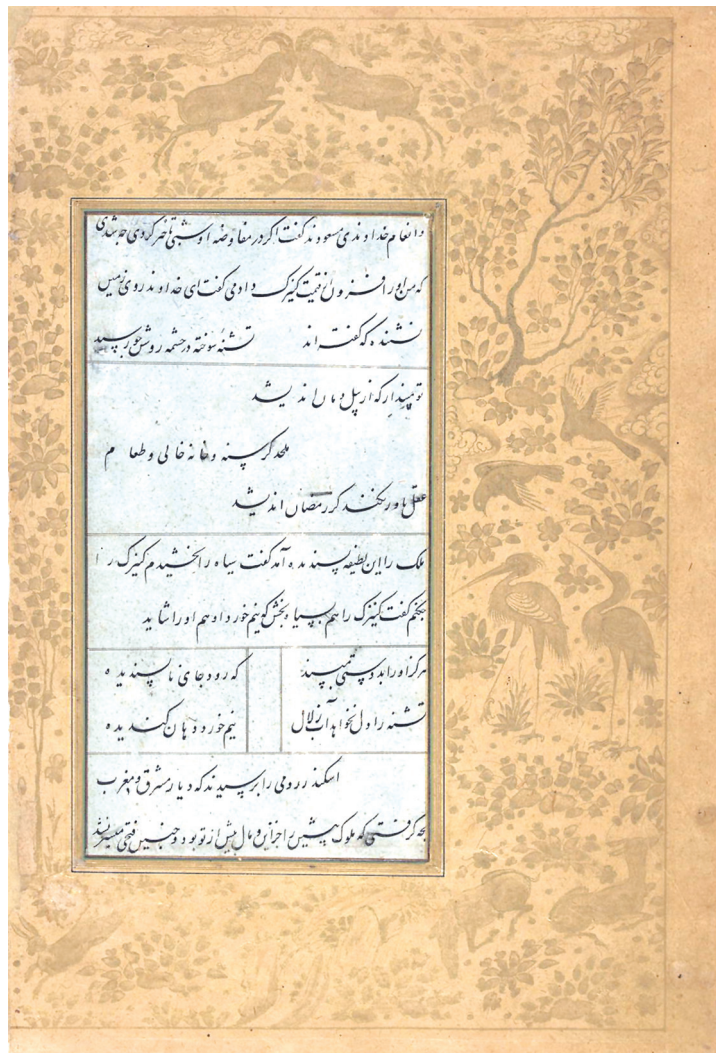 و انعام خداوندی متعودند گفت اگر در مفاوضه او شبی تاخیر کردی چه شدی
که من او را افزون از قیمت کنیزک دادمی گفت ای خداوند روی زمین
نشنیده که گفته اند تشنه سوخته در چشمه روشن چو رسید
تو مپندار که از پیل دمان اندیشد
ملحد گرسنه و خانه خالی و طعام
عقل باور نکند کز رمضان اندیشد
ملک را این لطیفه پسندیده آمد گفت سیاه را بخشیدم کنیزک را
چکنم گفت کنیزک را هم بسیاه بخش کو نیم خورد او هم او را شاید
هرگز او را بدوستی مپسند که رود جای ناپسندیده
تشنه را دل نخواهد آب زلال نیم خورد دهان گندیده
اسکندر رومی را پرسیدند که دیار مشرق و مغرب
بچه گرفتی که ملوک پیشین را خزاین و مال بیش از تو بود و چنین فتحی میسر نشد